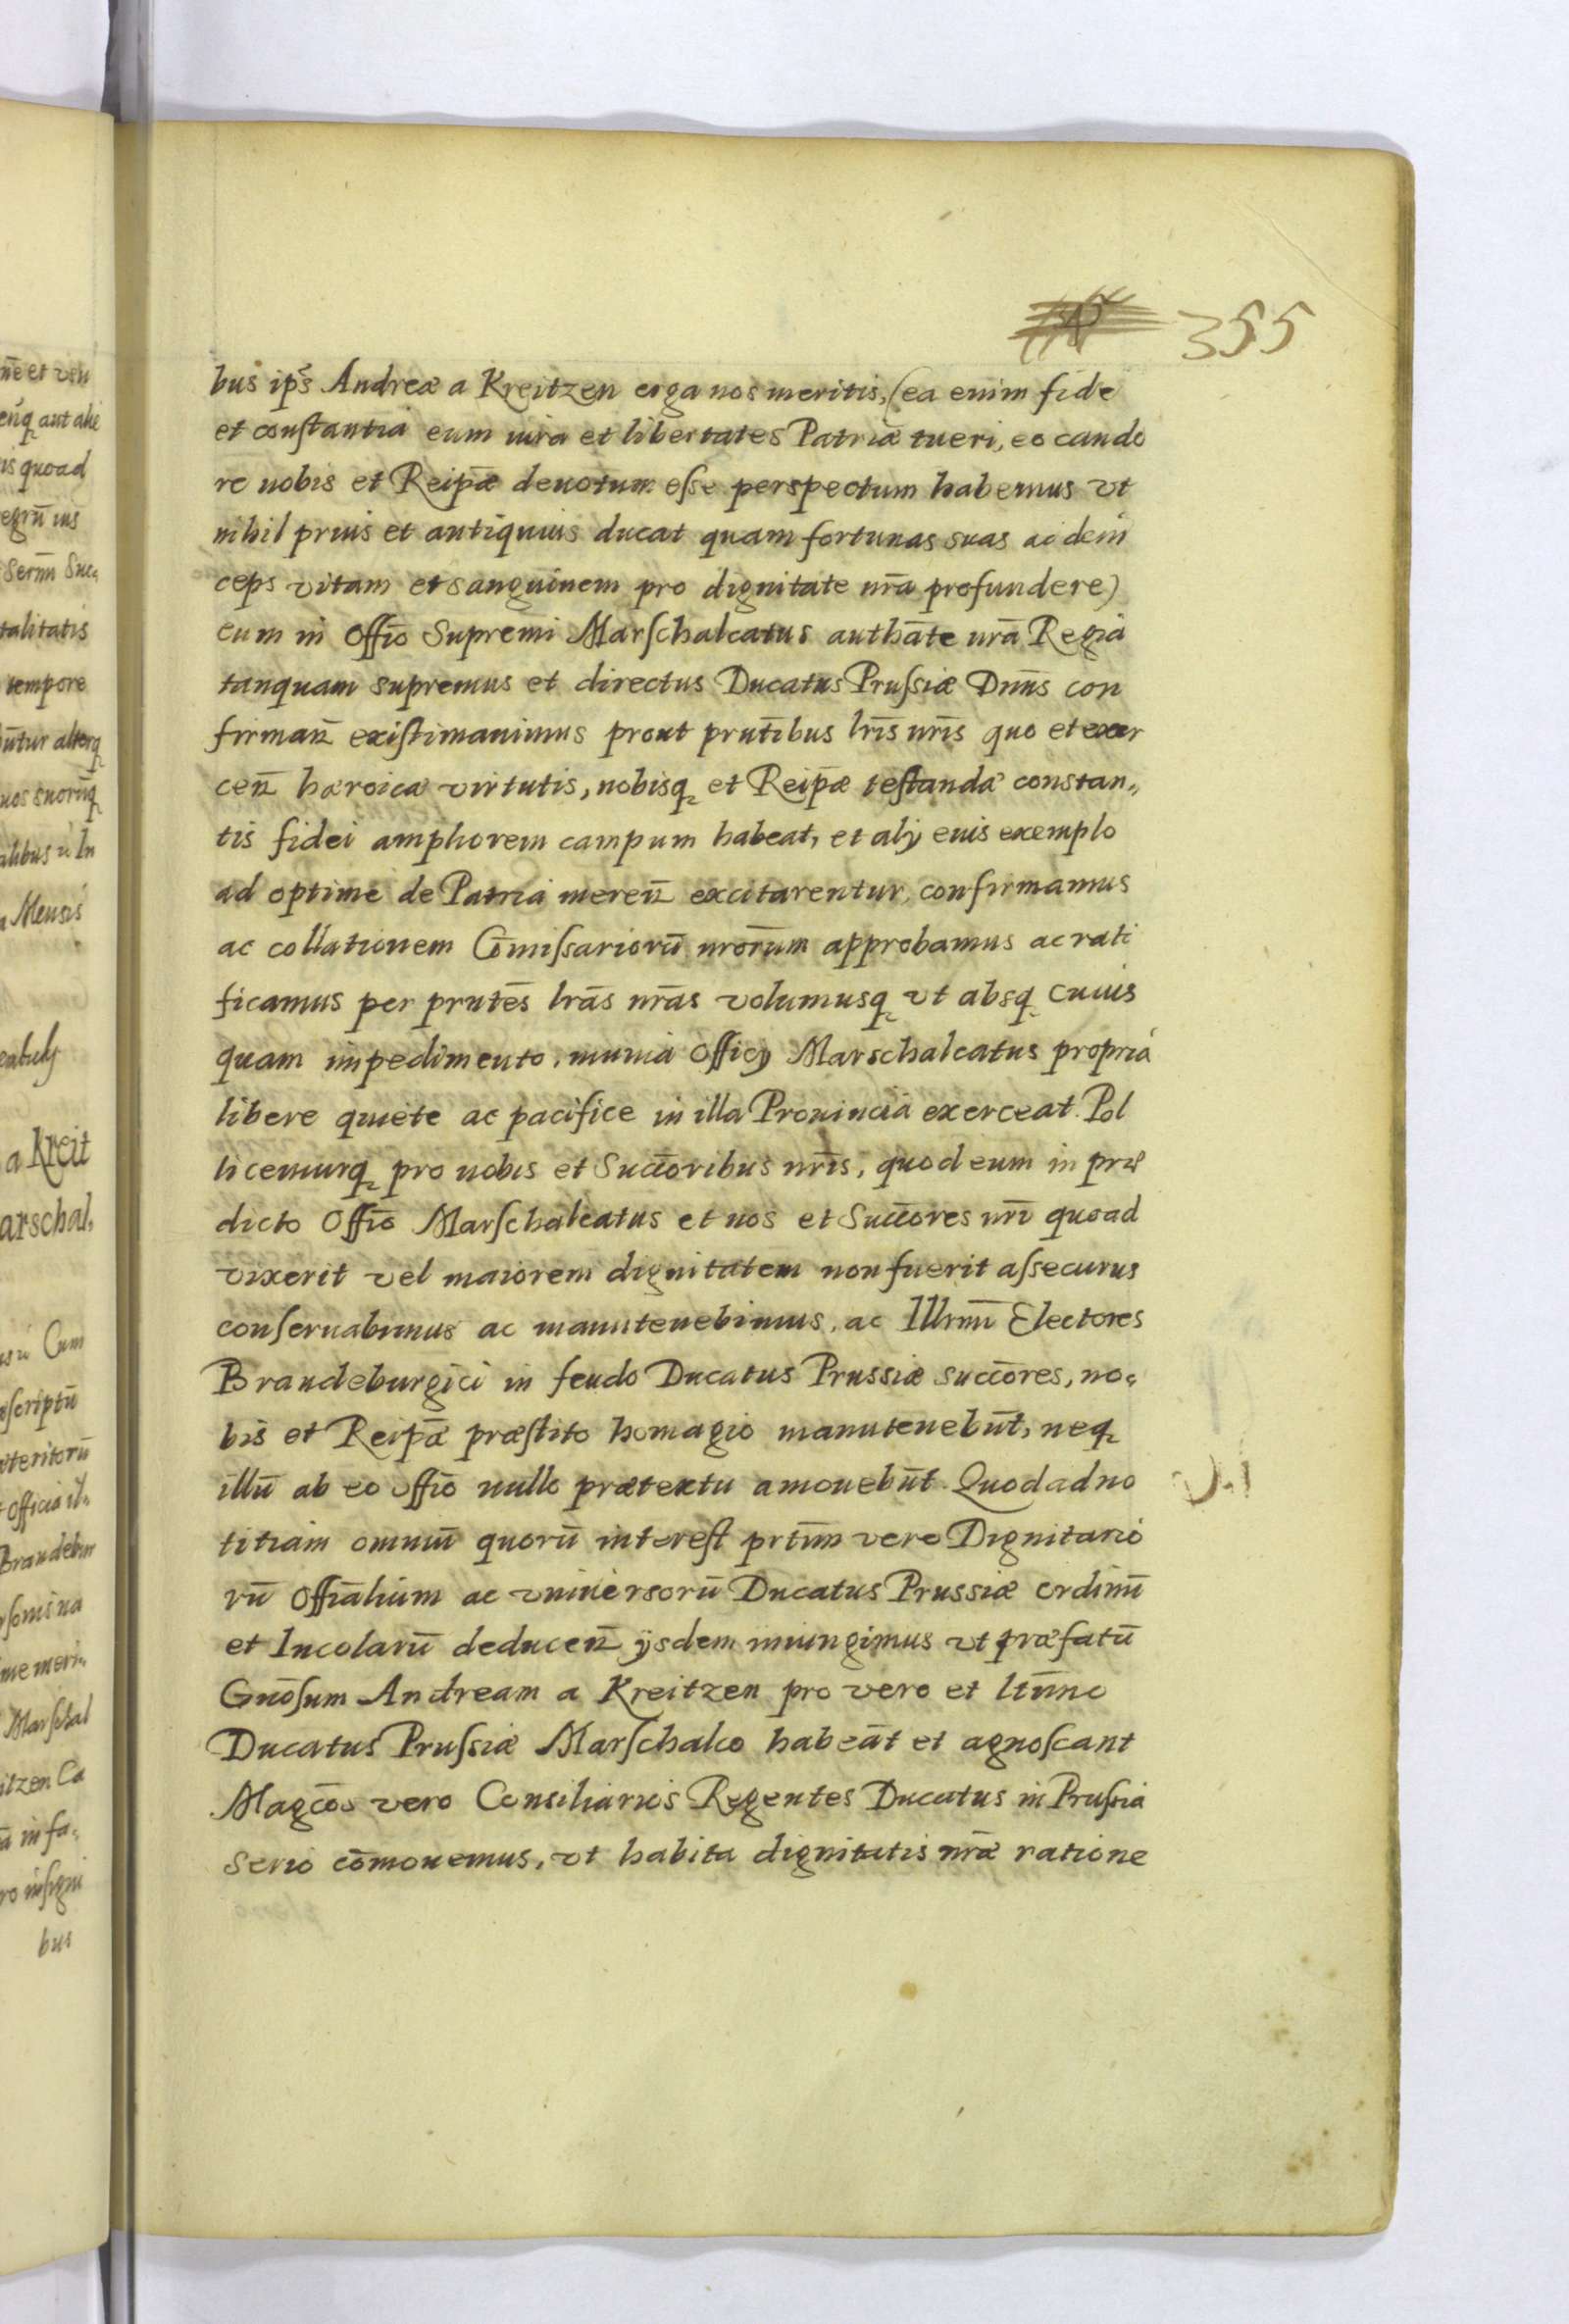 355
bus ip̄s Andreæ a Kreitzen erga nos meritis, (ea enim fide
et constantia eum iura et libertates Patriæ tueri, eo cando
re nobis et Reip̄æ deuotum esse perspectum habemus vt
nihil prius et antiquius ducat quam fortunas suas ac dein
ceps vitam et sanguinem pro dignitate nr̄a profundere)
eum in Offīo Supremi Marschalcatus authāte nr̄a Regia
tanquam supremus et directus Ducatus Prussiæ Dn̄us con
firman̄ existimauimus prout prn̄tibus lr̄is nr̄is quo et exer
cen̄ hæroicæ virtutis, nobisq et Reip̄æ testandæ constan„
tis fidei ampliorem campum habeat, et alij euis exemplo
ad optime de Patria meren̄ excitarentur, confirmamus
ac collationem Cōmissariorū nrōrum approbamus ac rati
ficamus per prn̄tes lr̄as nr̄as volumusq vt absq cuius
quam impedimento, munia Officij Marschalcatus propria
libere quiete ac pacifice in illa Prouincia exerceat. Pol
licemurq pro nobis et Succ̄oribus nr̄is, quod eum in præ
dicto Offīo Marschalcatus et nos et Succ̄ores nr̄i quoad
vixerit vel maiorem dignitatem non fuerit assecutus
conseruabimus ac manutenebimus, ac Illrm̄i Electores
Brandeburgici in feudo Ducatus Prussiæ succ̄ores, no„
bis et Reip̄æ præstito homagio manutenebūt, neq
illū ab eo offīo nullo prætextu amouebūt. Quod ad no
titiam omniū quorū interest prt̄im vero Dignitario
rū Offīalium ac vniuersorū Ducatus Prussiæ ordinū
et Incolarū deducen̄ ijsdem iniungimus vt præfatū
Gnōsum Andream a Kreitzen pro vero et ltīmo
Ducatus Prussiæ Marschalco habeāt et agnoscant
Magc̄os vero Consiliarios Regentes Ducatus in Prussia
serio cōmonemus, vt habita dignitatis nr̄æ ratione